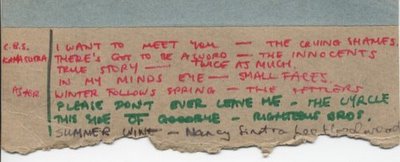 C.B.S. I WANT TO MEET YOU — THE CRYING SHAMES.
KAMASUTRA THERE'S GOT TO BE A WORD — THE INNOCENTS
TRUE STORY — TWICE AS MUCH.
IN MY MINDS EYE — SMALL FACES.
WINTER FOLLOWS SPRING — THE SETTLORS
PLEASE DON'T EVER LEAVE ME - THE CYRCLE
THIS SIDE OF GOODBYE - RIGHTEOUS BROS.
SUMMER WINE - Nancy Sinatra Lee Hazlewood